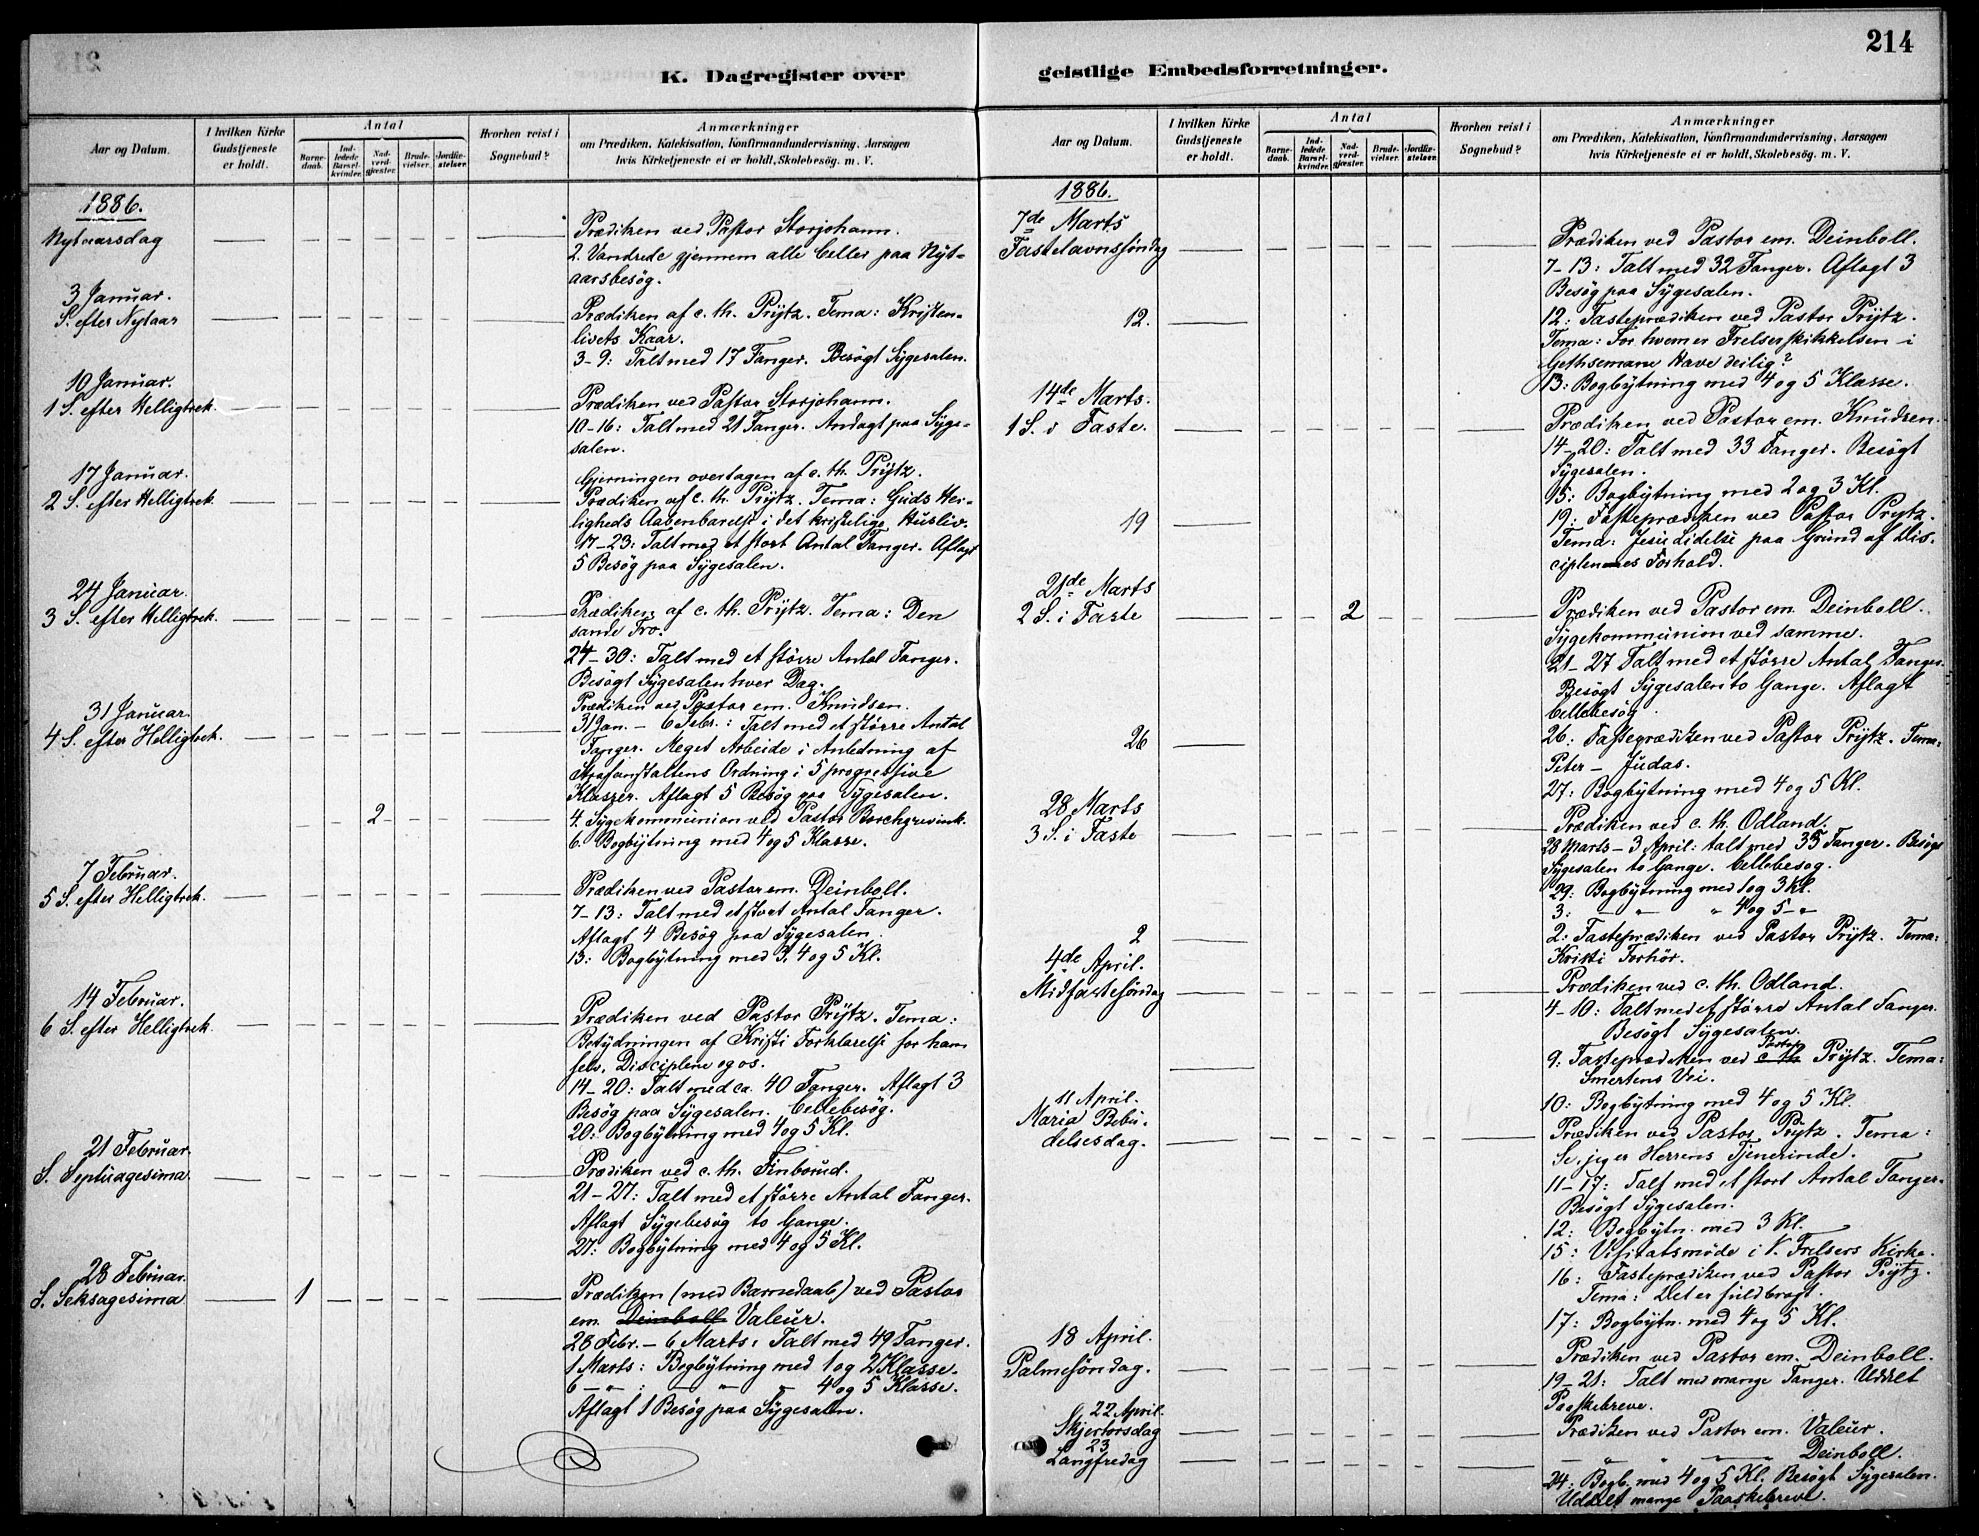 214
K. Dagregister over
geistlige Embedsforretninger.
Aar og Datum.
I hvilken Kirke Gudstjeneste er holdt.
Antal
Barnedaab.
Indledede Barselkvinder.
Nadverdgjæster.
Brudevielser.
Jordfæstelser.
Hvorhen reist i Sognebud?
Anmærkninger
om Prædiken, Katekisation, Konfirmandundervisning, Aarsagen
hvis Kirketjeneste ei er holdt, Skolebesøg. m. V.
1886.
Nytaarsdag
Prædiken ved Pastor Storjohann.
2. Vandrede gjennem alle Celler paa Nyt-
aarsbesøg.
3 Januar.
S. efter Nytaar
Prædiken af c. th. Prÿtz. Tema: Kristen-
livets Kaar.
3-9: Talt med 17 Fanger. Besögt Sygesalen.
10 Januar.
1 S. efter Helligtrek.
Prædiken ved Pastor Storjohann.
10-16: Talt med 21 Fanger. Andagt paa Syge-
salen.
17 Januar.
2 S. efter Helligtrek.
Gjerningen overtagen af c. th. Prÿtz.
Prædiken af c. th. Prÿtz. Tema: Guds Her-
ligheds Aabenbarelse i det kristelige Husliv.
17-23: Talt med et stort Antal Fanger. Aflagt
5 Besøg paa Sygesalen.
24 Januar.
3 S. efter Helligtrek.
Prædiken af c. th. Prÿtz. Tema: Den
sande Tro.
24-30: Talt med et større Antal Fanger.
Besögt Sygesalen hver Dag.
31 Januar.
4 S. efter Helligtrek.
Prædiken ved Pastor em. Knudsen.
31 Jan. - 6 Febr.: Talt med et større Antal
Fanger. Meget Arbeide i Anledning af
Strafanstaltens Ordning i 5 progressive
Klasser. Aflagt 5 Besøg paa Sygesalen.
2
4. Sygekommunion ved Pastor Borchgrevink.
6. Bogbÿtning med 4 og 5 Klasse.
7 Februar.
5 S. efter Helligtrek.
Prædiken ved Pastor em. Deinboll.
7-13: Talt med et stort Antal Fanger.
Aflagt 4 Besøg paa Sygesalen.
13: Bogbytning med 3, 4 og 5 Kl.
14 Februar.
6 S. efter Helligtrek.
Prædiken ved Pastor Prÿtz. Tema:
Betydningen af Kristi Forklarelse for ham
selv, Disciplene og os.
14-20: Talt med ca. 40 Fanger. Aflagt 3
Besøg paa Sygesalen. Cellebesøg.
20: Bogbytning med 4 og 5 Kl.
21 Februar.
S. Septuagesima.
Prædiken ved c. th. Finborud.
21-27: Talt med et større Antal Fanger.
Aflagt Sygebesøg to Gange.
27: Bogbytning med 4 og 5 Kl.
28 Februar.
S. Seksagesima
1
Prædiken (med Barnedaab) ved Pastor
em. Deinboll Valeur.
28 Febr. - 6 Marts: Talt med 49 Fanger.
1 Marts: Bogbÿtning med 1 og 2 Klasse.
6 - " - : - " - 4 og 5 Klasse.
Aflagt 1 Besøg paa Sygesalen.
Aar og Datum.
I hvilken Kirke Gudstjeneste er holdt.
Antal
Barnedaab.
Indledede Barselkvinder.
Nadverdgjæster.
Brudevielser.
Jordfæstelser.
Hvorhen reist i Sognebud?
Anmærkninger
om Prædiken, Katekisation, Konfirmandundervisning, Aarsagen
hvis Kirketjeneste ei er holdt, Skolebesøg. m. V.
1886.
7de Marts
Fastelavnssøndag
Prædiken ved Pastor em. Deinboll.
7-13: Talt med 32 Fanger. Aflagt 3
Besøg paa Sÿgesalen.
12.
12: Fasteprædiken ved Pastor Prÿtz.
Tema: For hvem er Frelserskikkelsen i
Gethsemane Have deilig?
13: Bogbÿtning med 4 og 5 Klasse.
14de Marts.
1 S. i Faste.
Prædiken ved Pastor em. Knudsen.
14-20: Talt med 33 Fanger. Besøgt
Sÿgesalen.
15: Bogbÿtning med 2 og 3 Kl.
19
19: Fasteprædiken ved Pastor Prytz.
Tema: Jesu Lidelse paa Grund af Dis-
ciplennes Forhold.
21de Marts
2 S. i Faste
2
Prædiken ved Pastor em. Deinboll.
Sÿgekommunion ved samme.
21-27 Talt med et større Antal Fanger.
Besøgt Sÿgesalen to Gange. Aflagt
Cellebesøg.
26
26: Fasteprædiken ved Pastor Prÿtz. Tema:
Peter - Judas.
27: Bogbÿtning med 4 og 5 Kl.
28 Marts
3 S. i Faste
Prædiken ved c. th. Odland.
28 Marts - 3 April: talt med 33 Fanger. Besøgt
Sÿgesalen to Gange. Cellebesøg.
29: Bogbÿtning med 1 og 3 Kl.
3: - " - " 4 og 5 - " -
2
2: Fasteprædiken ved Pastor Prÿtz. Tema:
Kristi Forhör.
4de April.
Midfastesøndag
Prædiken ved c. th. Odland.
4-10: Talt med et større Antal Fanger.
Besøgt Sÿgesalen.
9: Fasteprædiken ved c. th. Pastor Prÿtz. Tema:
Smertens Vei.
10: Bogbÿtning med 4 og 5 Kl.
11 April.
Maria Bebu-
delsesdag.
Prædiken ved Pastor Prÿtz. Tema:
Se, jeg er Herrens Tjenerinde.
11-17: Talt med et stort Antal Fanger.
Besøgt Sÿgesalen.
12: Bogbÿtn. med 3 Kl.
15: Visitatsmøde i V. Frelsers Kirke.
16: Fasteprædiken ved Pastor Prÿtz.
Tema: Det er fuldbragt.
17: Bogbÿtn. med 4 og 5 Kl.
18 April.
Palmesøndag.
Prædiken ved Pastor em. Deinboll.
19-21: Talt med mange Fanger. Uddelt
Paaskebreve.
22 April.
Skjertorsdag
Prædiken ved Pastor em. Valeur.
23
Langfredag
- " - " - " - Deinboll.
24: Bogb. med 4 og 5 Kl. Besøgt Sÿgesalen.
Uddelt mange Paaskebreve.